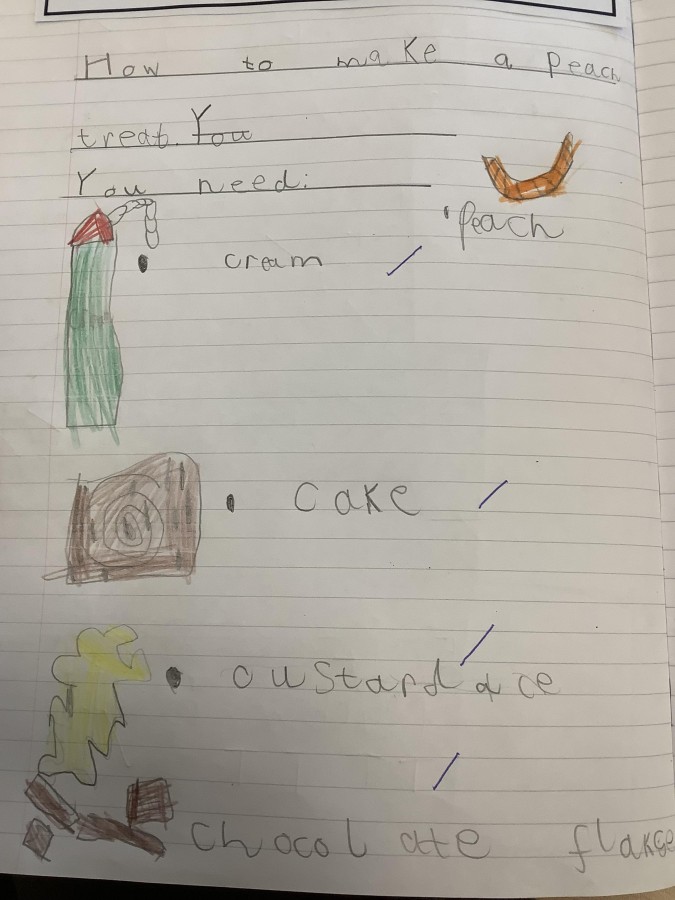 How to make a peach
treat. You
You need:
• Peach
• cream
• cake
• custard
chocolate flakes